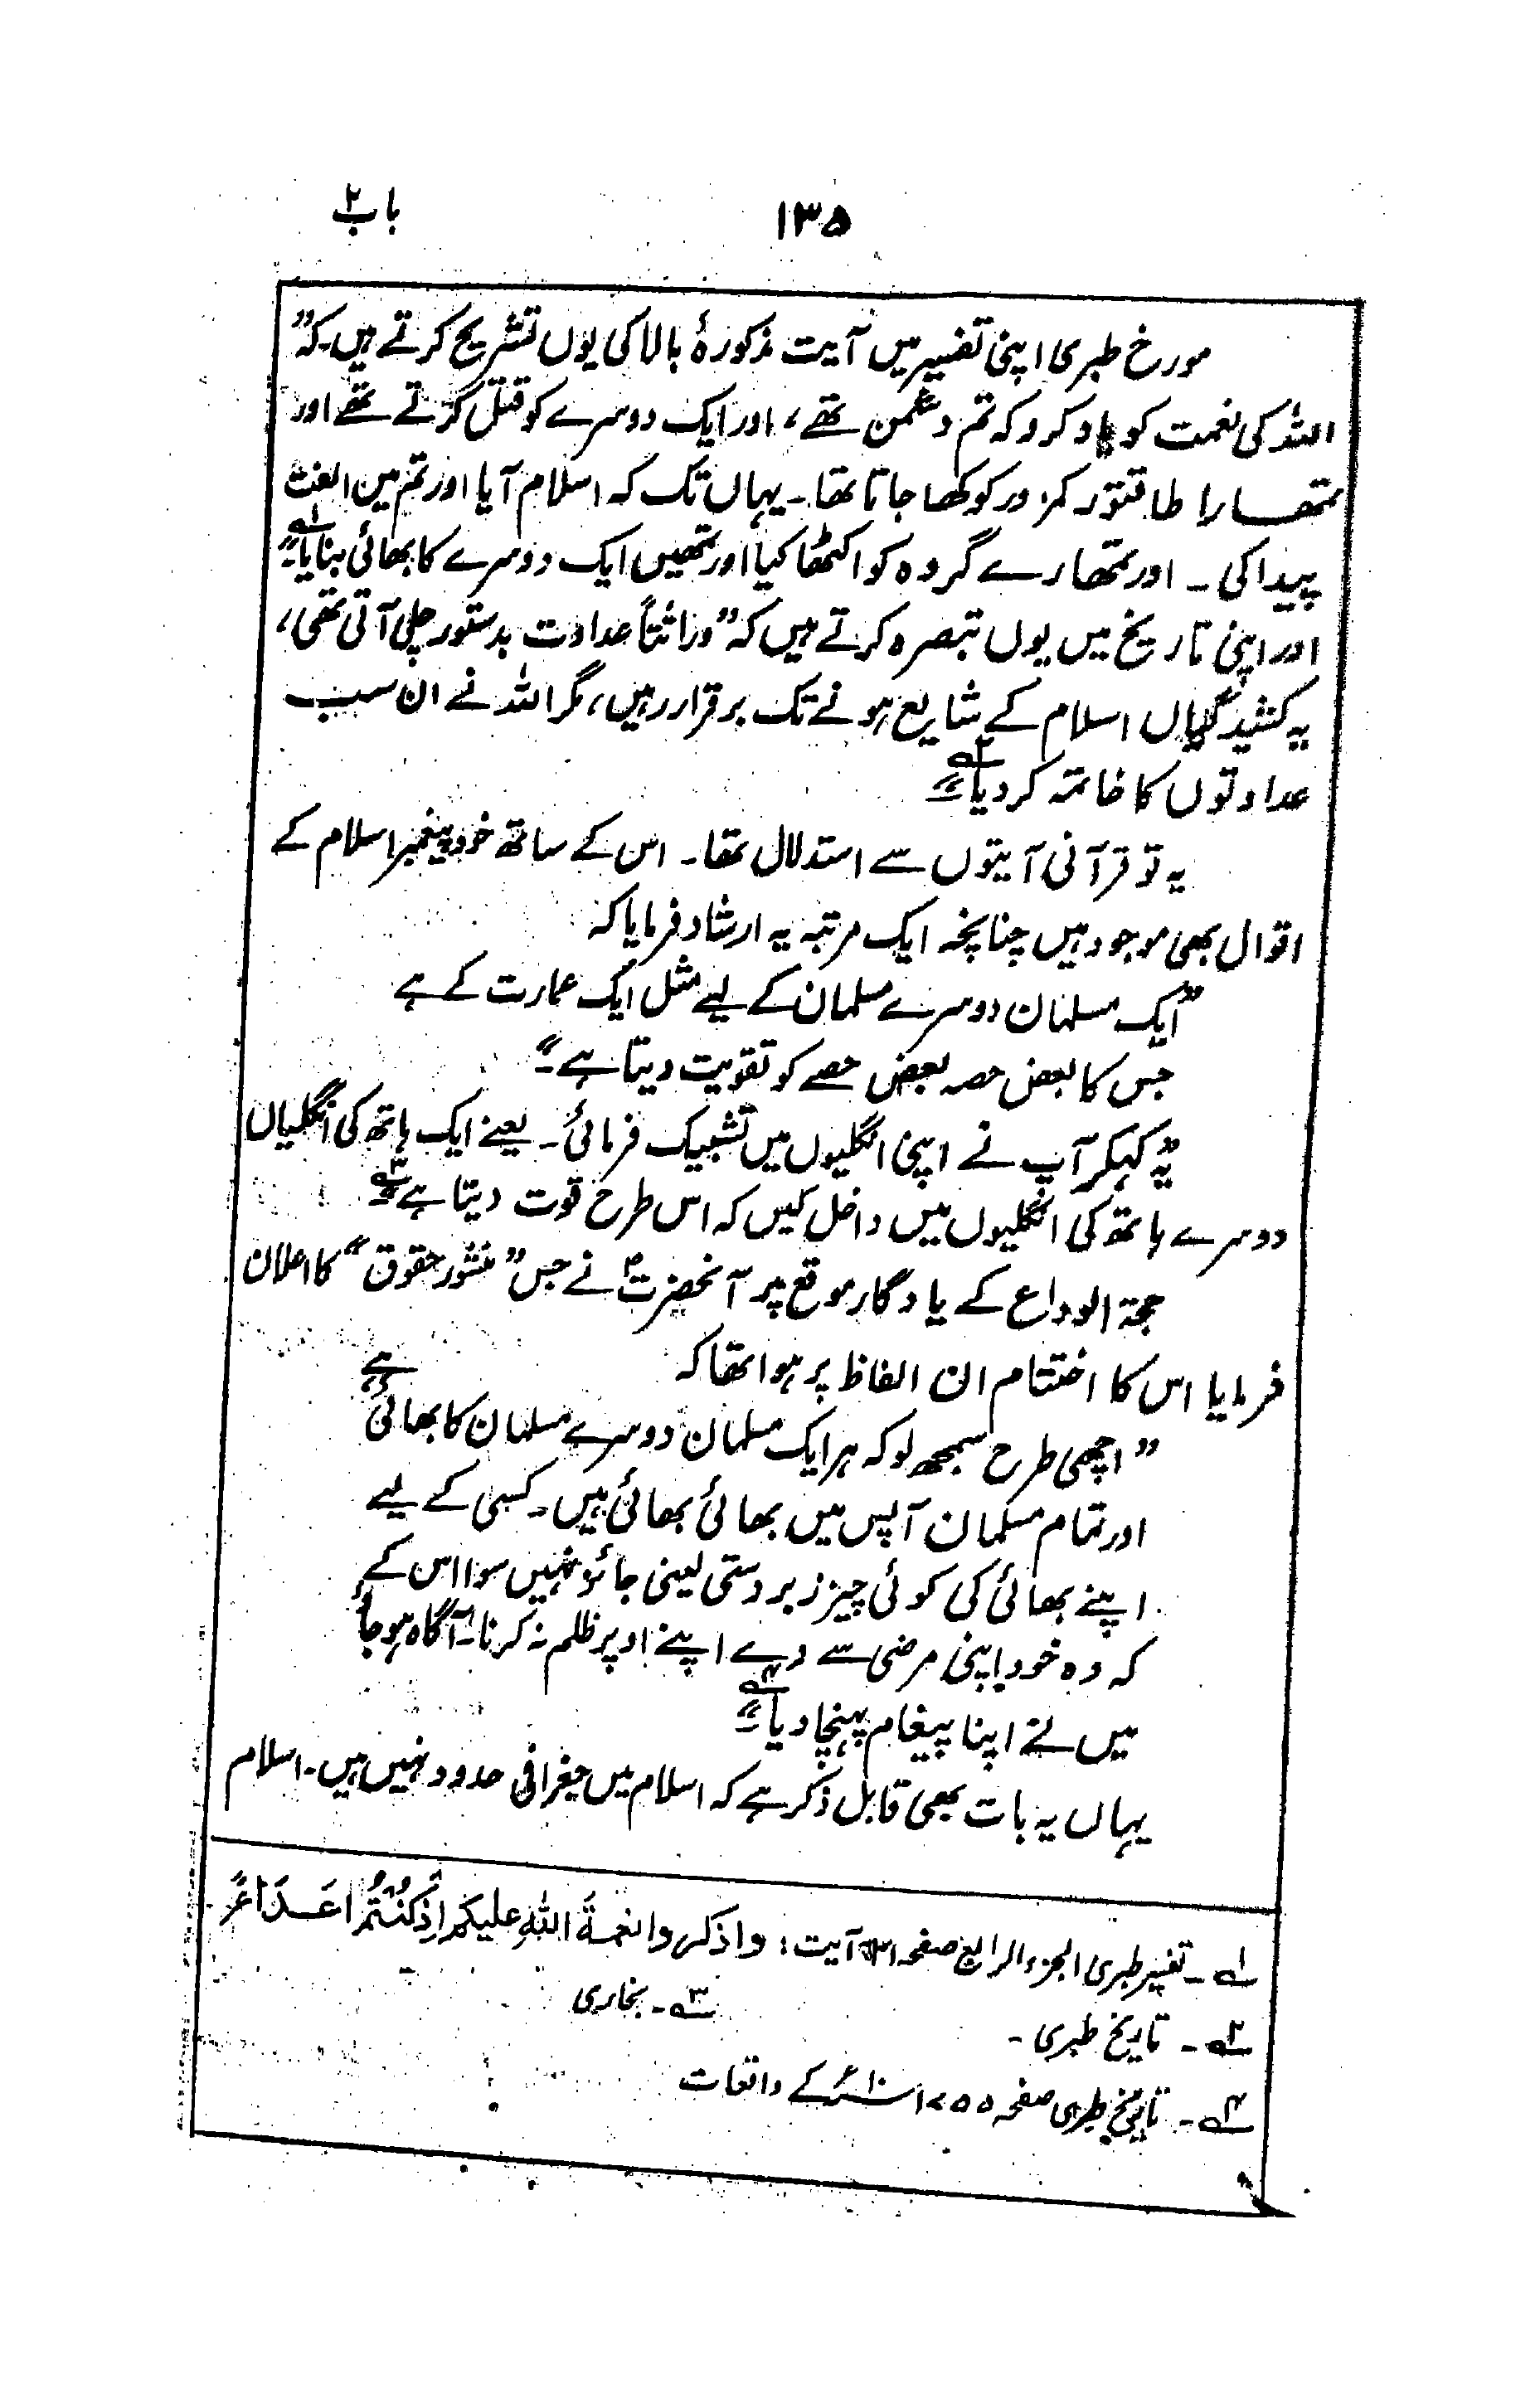 باب ۲
۱۳۵
مورخ طبری اپنی تفسیر میں آیت مذکورۂ بالا کی یوں تشریح کرتے ہیں۔ کہ "
اللہ کی نعمت کو یاد کرو کہ تم دشمن تھے، اور ایک دوسرے کو قتل کرتے تھے اور
تمھارا طاقتور کمزور کو کھا جاتا تھا۔ یہاں تک کہ اسلام آیا اور تم میں الفت
پیدا کی۔ اور تمھارے گروہ کو اکٹھا کیا اور تمھیں ایک دوسرے کا بھائی بنایا۔" ۱؎
اور اپنی تاریخ میں یوں تبصرہ کرتے ہیں کہ "وراثتاً عداوت بدستور چلی آتی تھی،
یہ کشیدگیاں اسلام کے شایع ہونے تک برقرار رہیں، مگر اللہ نے ان سب
عداوتوں کا خاتمہ کر دیا۔" ۲؎
یہ تو قرآنی آیتوں سے استدلال تھا۔ اس کے ساتھ خود پیغمبر اسلام کے
اقوال بھی موجود ہیں چنانچہ ایک مرتبہ یہ ارشاد فرمایا کہ
"ایک مسلمان دوسرے مسلمان کے لیے مثل ایک عمارت کے ہے
جس کا بعض حصہ بعض حصے کو تقویت دیتا ہے۔"
یہ کہکر آپ نے اپنی انگلیوں میں تشبیک فرمائی۔ یعنے ایک ہاتھ کی انگلیاں
دوسرے ہاتھ کی انگلیوں میں داخل کیں کہ اس طرح قوت دیتا ہے۔ ۳؎
حجۃ الوداع کے یادگار موقع پر آنحضرتؐ نے جس "منشور حقوق" کا اعلان
فرمایا اس کا اختتام ان الفاظ پر ہوا تھا کہ
"اچھی طرح سمجھ لو کہ ہر ایک مسلمان دوسرے مسلمان کا بھائی ہے
اور تمام مسلمان آپس میں بھائی بھائی ہیں۔ کسی کے لیے
اپنے بھائی کی کوئی چیز زبردستی لینی جائز نہیں سوا اس کے
کہ وہ خود اپنی مرضی سے دے اپنے اوپر ظلم نہ کرنا۔ آگاہ ہو جاؤ
میں نے اپنا پیغام پہنچا دیا۔" ۴؎
یہاں یہ بات بھی قابل ذکر ہے کہ اسلام میں جغرافی حدود نہیں ہیں۔ اسلام
۱؎۔ تفسیر طبری الجزء الرابع صفحہ آیت: واذکروا نعمۃَ اللہِ علیکم اِذْکُنْتُمْ اَعَدَاءً
۲؎۔ تاریخ طبری۔ ۳؎۔ بخاری
۴؎۔ تاریخ طبری صفحہ ۱۷۵۵ سنہ ۱۰ کے واقعات